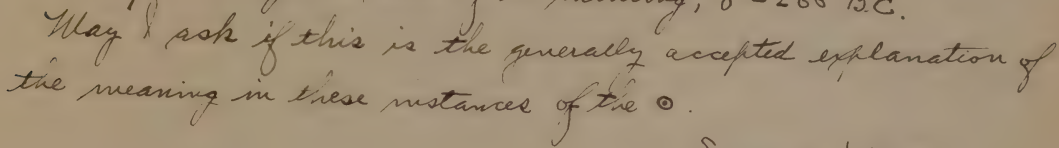 B.C.
May I ask if this is the generally accepted explanation of
the meaning in these instances of the ⊙.